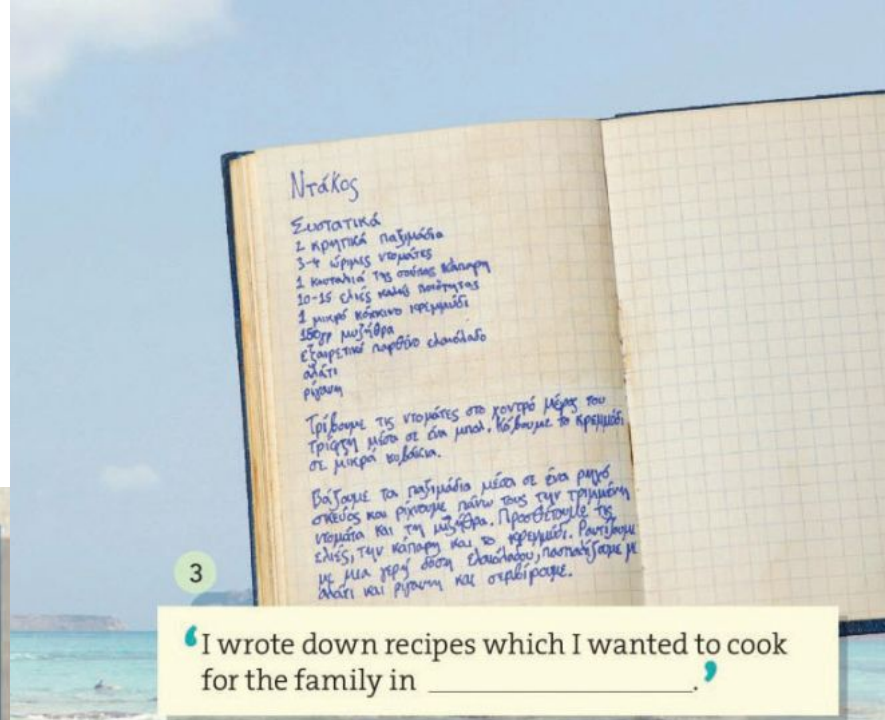 Ντάκος
Συστατικά
2 κρητικά παξιμάδια
3-4 ώριμες ντομάτες
1 κουταλιά της σούπας κάπαρη
10-15 ελιές καλής ποιότητας
1 μικρό κόκκινο κρεμμύδι
150γρ μυζήθρα
εξαιρετικό παρθένο ελαιόλαδο
αλάτι
ρίγανη
Τρίβουμε τις ντομάτες στο χοντρό μέρος του
τρίφτη μέσα σε ένα μπολ. Κόβουμε το κρεμμύδι
σε μικρά κυβάκια.
Βάζουμε τα παξιμάδια μέσα σε ένα ρηχό
σκεύος και ρίχνουμε πάνω τους την τριμμένη
ντομάτα και τη μυζήθρα. Προσθέτουμε τις
ελιές, την κάπαρη και το κρεμμύδι. Ραντίζουμε
με μια γερή δόση ελαιόλαδου, πασπαλίζουμε με
αλάτι και ρίγανη και σερβίρουμε.
3
‘I wrote down recipes which I wanted to cook
for the family in ____________________.’